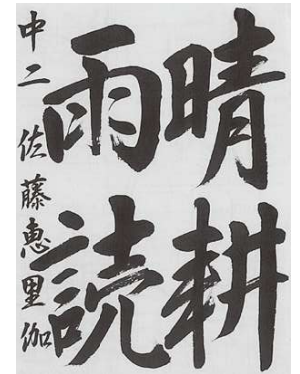 晴耕
雨読
中二 佐藤恵里伽